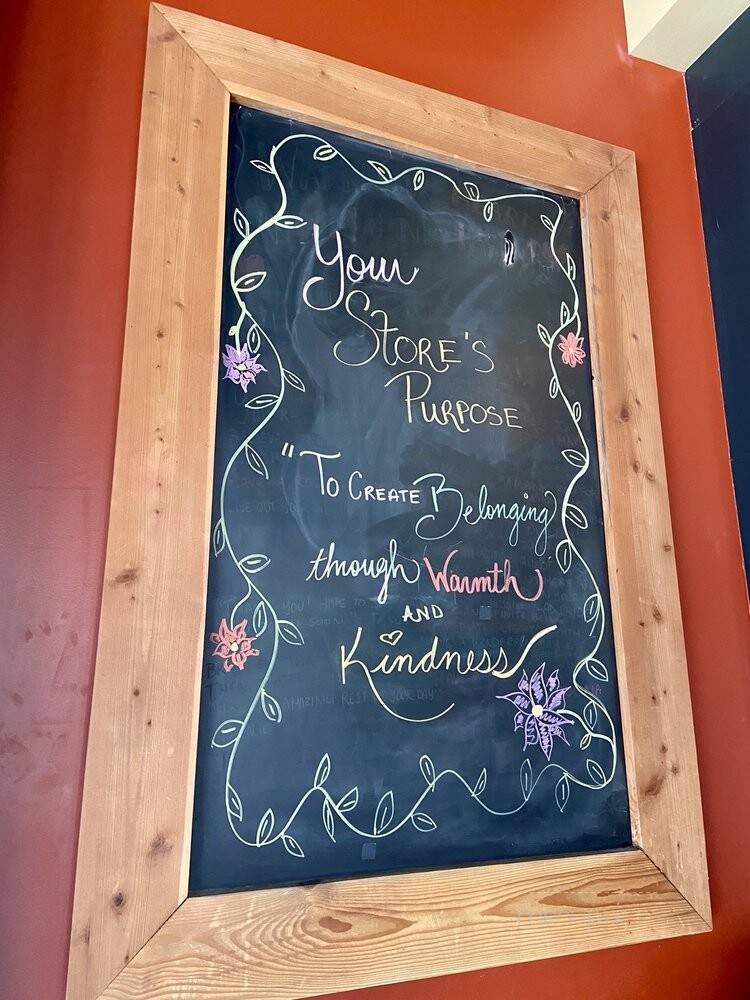 Your
STORE'S
PURPOSE
"TO CREATE Belonging
through Warmth
AND
Kindness